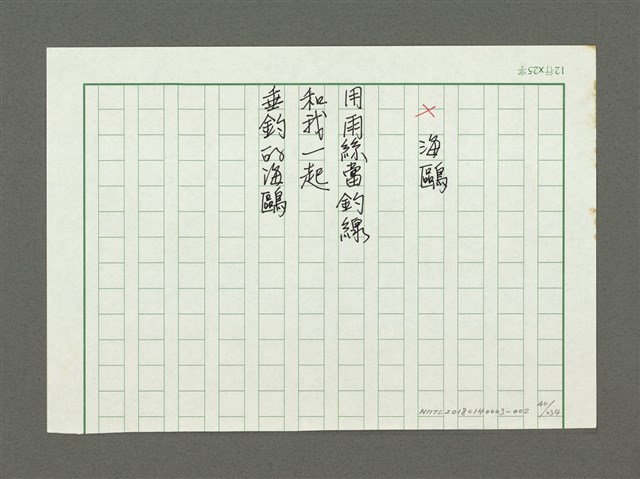 12行×25字
× 海鷗
用雨絲當釣線
和我一起
垂釣的海鷗
NMTL20180140003-002